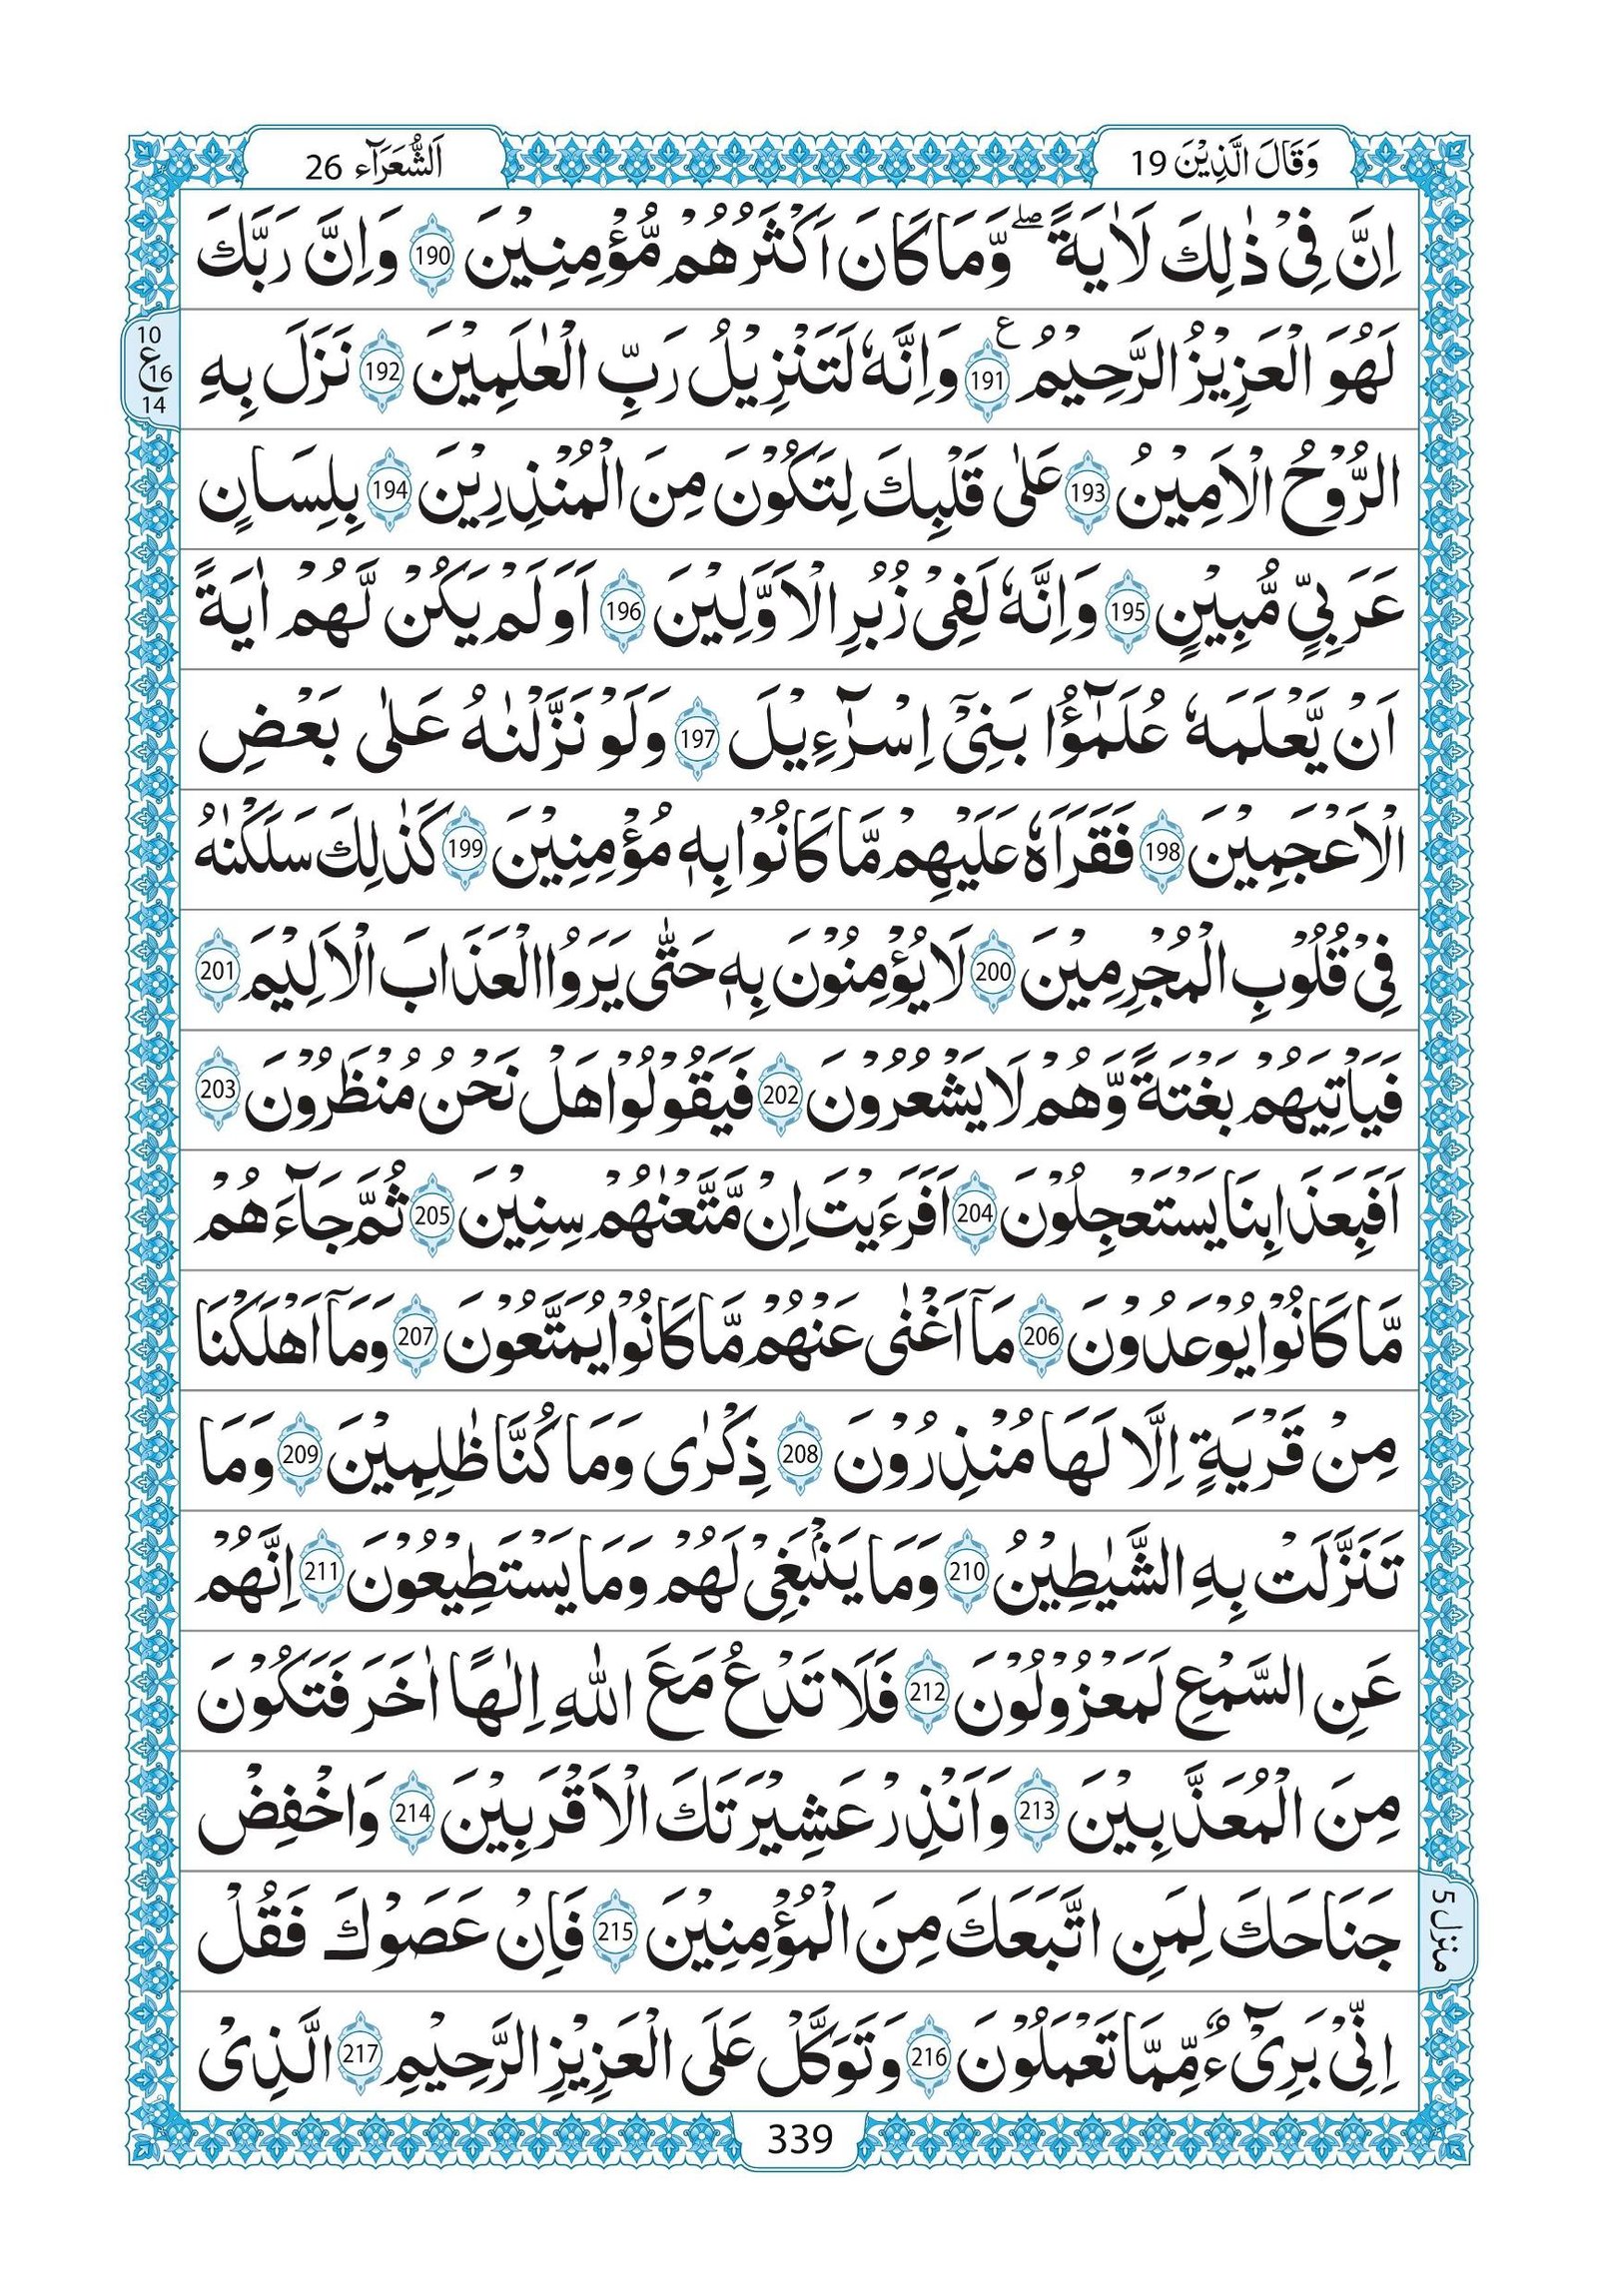 وَقَالَ الَّذِيْنَ 19
اَلشُّعَرَآء 26
اِنَّ فِيْ ذٰلِكَ لَاٰيَةً ۖ وَّمَا كَانَ اَكْثَرُهُمْ مُّؤْمِنِيْنَ 190 وَاِنَّ رَبَّكَ
لَهُوَ الْعَزِيْزُ الرَّحِيْمُ ع 191 وَاِنَّهٗ لَتَنْزِيْلُ رَبِّ الْعٰلَمِيْنَ 192 نَزَلَ بِهِ
10
ع 16
14
الرُّوْحُ الْاَمِيْنُ 193 عَلٰى قَلْبِكَ لِتَكُوْنَ مِنَ الْمُنْذِرِيْنَ 194 بِلِسَانٍ
عَرَبِيٍّ مُّبِيْنٍ 195 وَاِنَّهٗ لَفِيْ زُبُرِ الْاَوَّلِيْنَ 196 اَوَلَمْ يَكُنْ لَّهُمْ اٰيَةً
اَنْ يَّعْلَمَهٗ عُلَمٰٓؤُا بَنِيْٓ اِسْرَآءِيْلَ 197 وَلَوْ نَزَّلْنٰهُ عَلٰى بَعْضِ
الْاَعْجَمِيْنَ 198 فَقَرَاَهٗ عَلَيْهِمْ مَّا كَانُوْا بِهٖ مُؤْمِنِيْنَ 199 كَذٰلِكَ سَلَكْنٰهُ
فِيْ قُلُوْبِ الْمُجْرِمِيْنَ 200 لَا يُؤْمِنُوْنَ بِهٖ حَتّٰى يَرَوُا الْعَذَابَ الْاَلِيْمَ 201
فَيَاْتِيَهُمْ بَغْتَةً وَّهُمْ لَا يَشْعُرُوْنَ 202 فَيَقُوْلُوْا هَلْ نَحْنُ مُنْظَرُوْنَ 203
اَفَبِعَذَابِنَا يَسْتَعْجِلُوْنَ 204 اَفَرَءَيْتَ اِنْ مَّتَّعْنٰهُمْ سِنِيْنَ 205 ثُمَّ جَآءَهُمْ
مَّا كَانُوْا يُوْعَدُوْنَ 206 مَآ اَغْنٰى عَنْهُمْ مَّا كَانُوْا يُمَتَّعُوْنَ 207 وَمَآ اَهْلَكْنَا
مِنْ قَرْيَةٍ اِلَّا لَهَا مُنْذِرُوْنَ 208 ذِكْرٰى وَمَا كُنَّا ظٰلِمِيْنَ 209 وَمَا
تَنَزَّلَتْ بِهِ الشَّيٰطِيْنُ 210 وَمَا يَنْۢبَغِيْ لَهُمْ وَمَا يَسْتَطِيْعُوْنَ 211 اِنَّهُمْ
عَنِ السَّمْعِ لَمَعْزُوْلُوْنَ 212 فَلَا تَدْعُ مَعَ اللّٰهِ اِلٰهًا اٰخَرَ فَتَكُوْنَ
مِنَ الْمُعَذَّبِيْنَ 213 وَاَنْذِرْ عَشِيْرَتَكَ الْاَقْرَبِيْنَ 214 وَاخْفِضْ
جَنَاحَكَ لِمَنِ اتَّبَعَكَ مِنَ الْمُؤْمِنِيْنَ 215 فَاِنْ عَصَوْكَ فَقُلْ
منزل 5
اِنِّيْ بَرِيْٓءٌ مِّمَّا تَعْمَلُوْنَ 216 وَتَوَكَّلْ عَلَى الْعَزِيْزِ الرَّحِيْمِ 217 الَّذِيْ
339